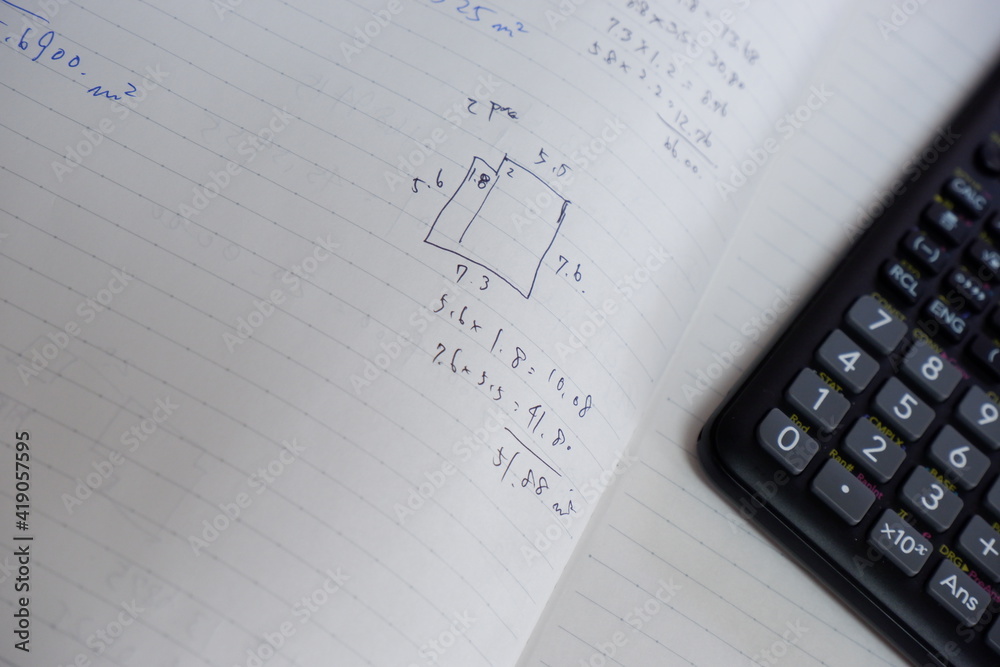 .6900. m²
25 m²
73 x 1.2 = 8.76
58 x 2.2 = 12.76
66.00
5.5
5.6
1.8
2
7.6.
7.3
5.6 x 1.8 = 10.08
7.6 x 5.5 = 41.80
51.88 m²
CALC
RCL
ENG
CONST
7
8
9
4
5
6
STAT
CMPLX
BASE
1
2
3
Rnd
Ran#
RanInt
π
e
DRG▶
PreAns
0
.
×10ˣ
+
Ans
Adobe Stock | #419057595
Adobe Stock